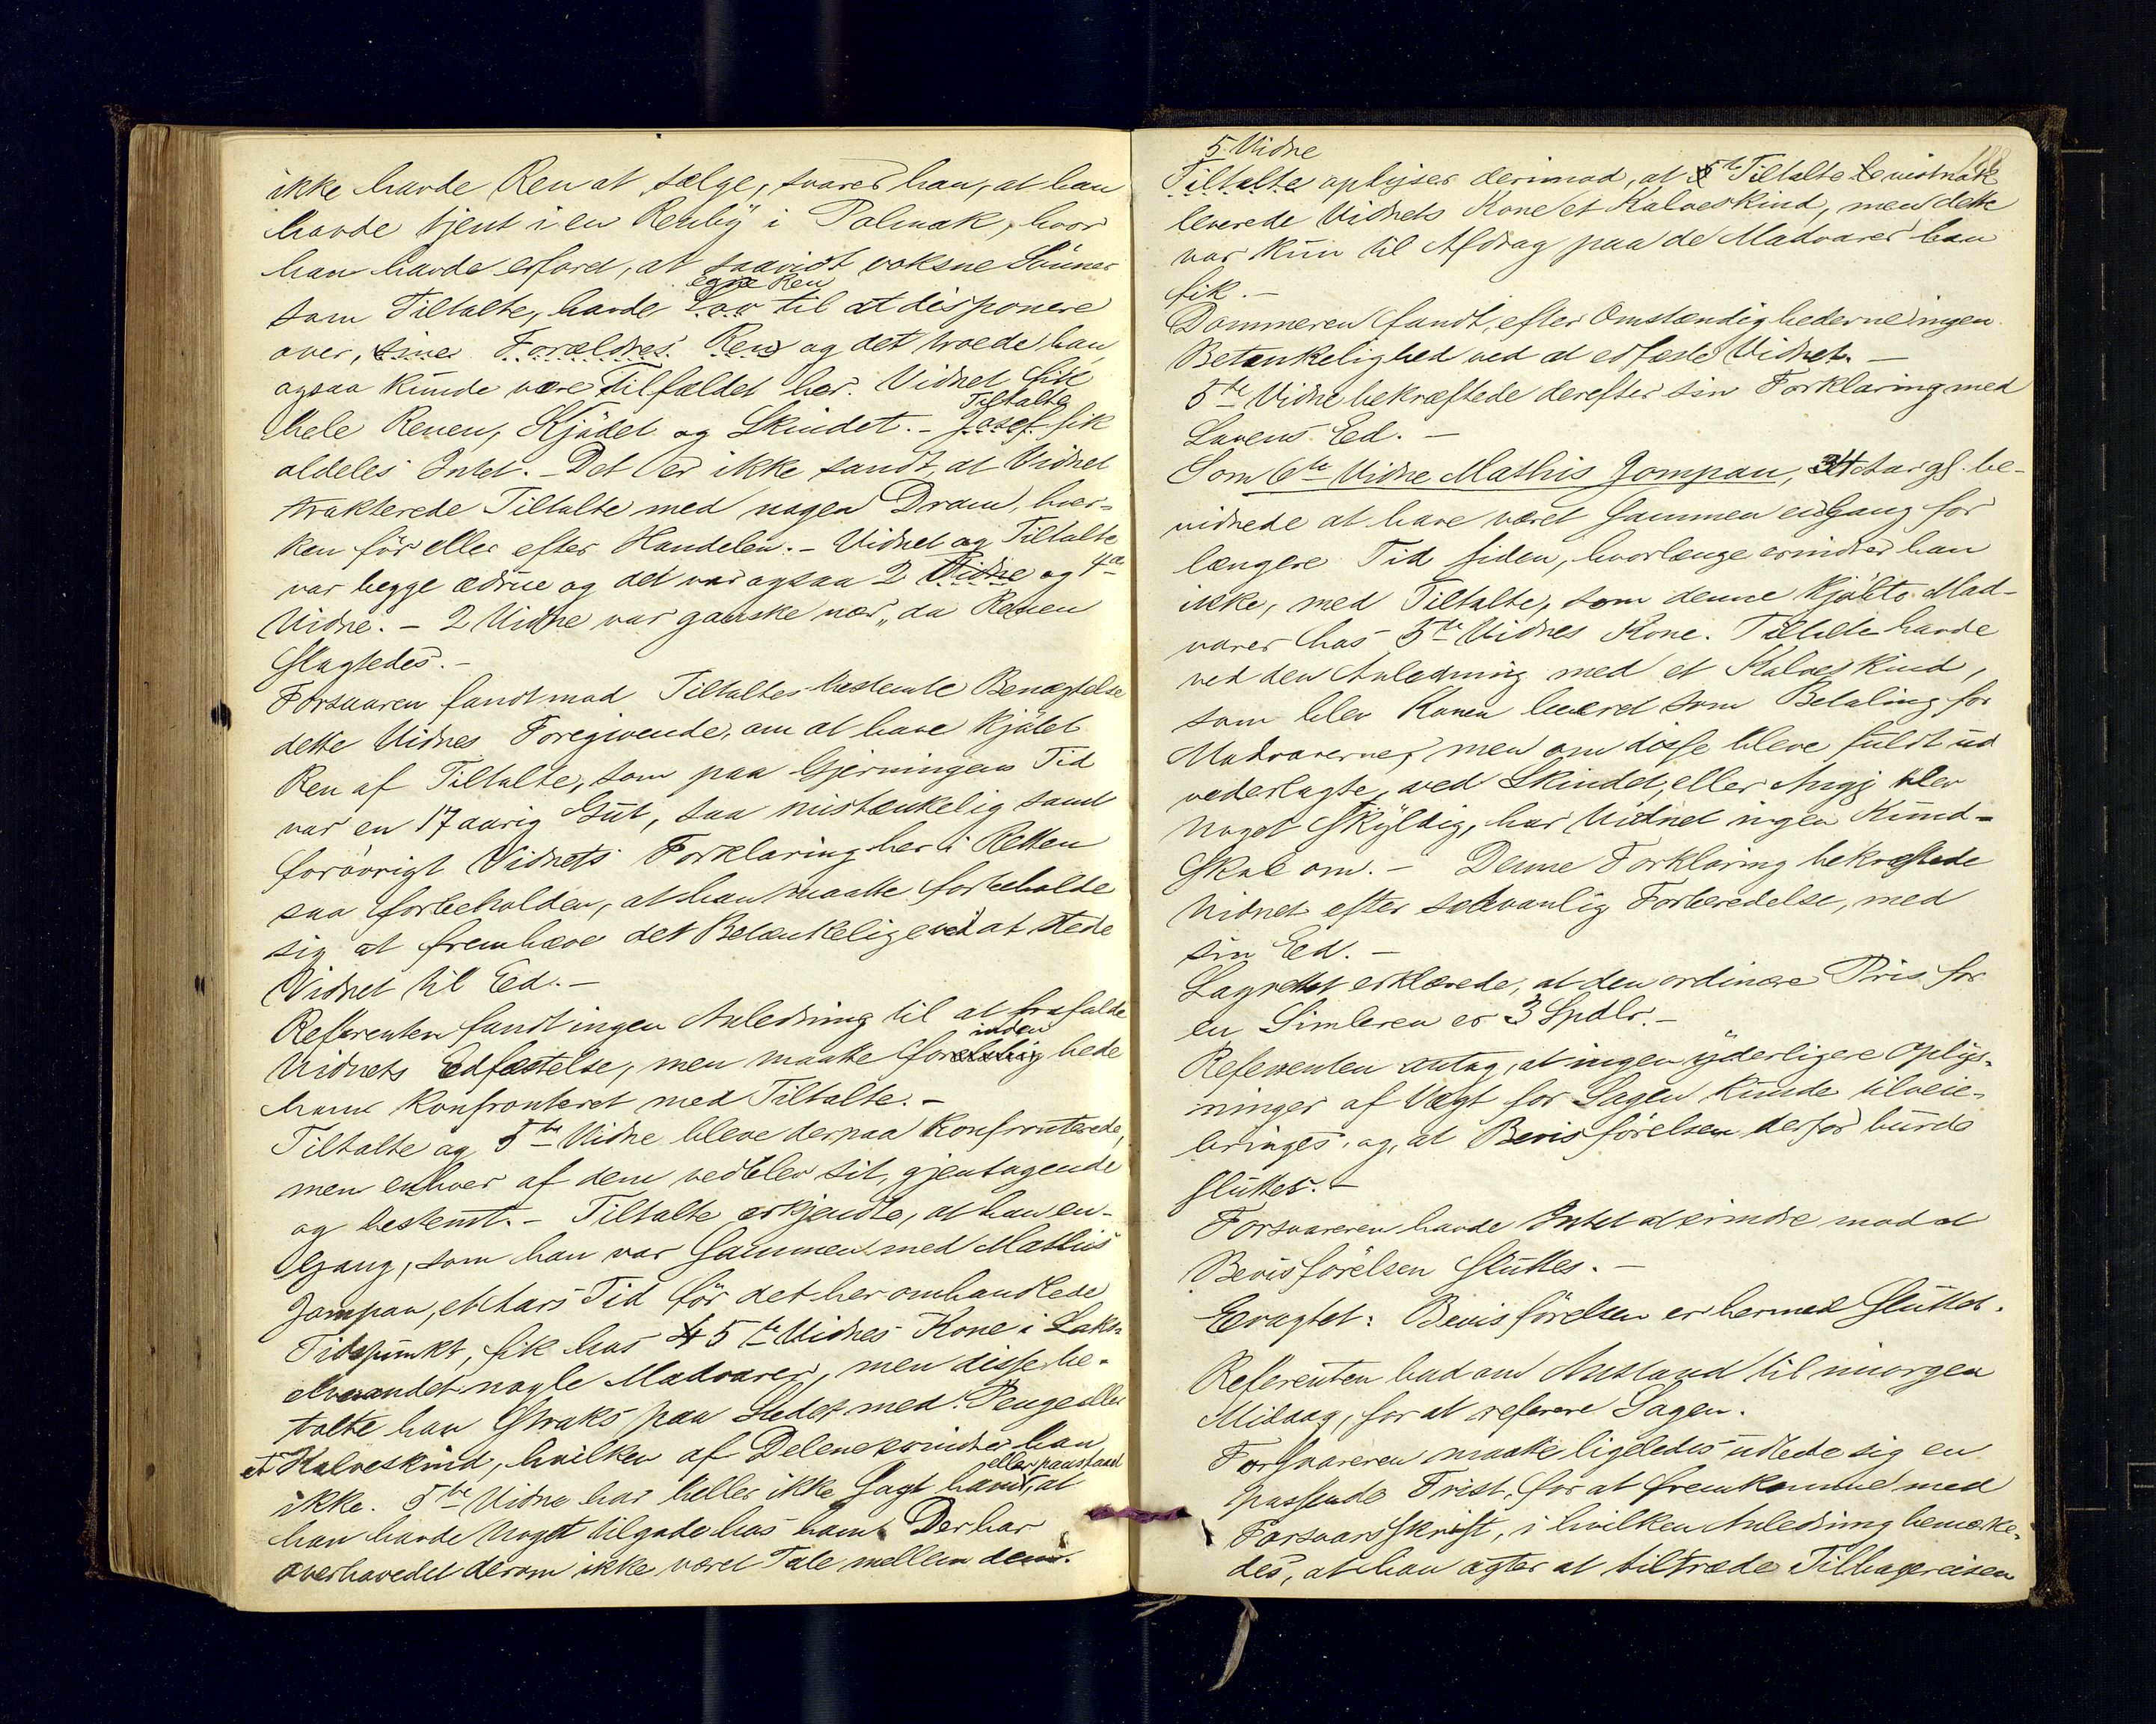 ikke havde Ren at sælge, svarer han, at han
havde tjent i en Renby i Polmak, hvor
han havde erfaret, at saavidt voksne Sönner
egne Ren
som Tiltalte, havde Lov til at disponere
over, sine Forældres Ren og det troede han
ogsaa kunde være Tilfældet her. Vidnet fik
Tiltalte
hele Renen, Kjödet og Skindet. - Josef fik
aldeles Intet. - Det er ikke sandt, at Vidnet
trakterede Tiltalte med nogen Dram, hver-
ken för eller efter Handelen. - Vidnet og Tiltalte
var begge ædrue og det var ogsaa 2 Vidne og 4de
Vidne. - 2 Vidne var ganske nær, da Renen
slagtedes. -
Forsvaren fandt mod Tiltaltes bestemte Benægtelse
dette Vidnes Foregivende, om at have kjöbt
Ren af Tiltalte, som paa Gjerningens Tid
var en 17 aarig Gut, saa mistænkelig samt
forövrigt Vidnets Forklaring her i Retten
saa forbeholden, at han maatte forbeholde
sig at fremhæve det Betænkelige ved at stede
Vidnet til Ed. -
Referenten fandt ingen Anledning til at frafalde
inden
Vidnets Edfæstelse, men maatte forelöbig bede
ham konfronteret med Tiltalte. -
Tiltalte og 5te Vidne bleve derpaa konfronterede,
men enhver af dem vedblev sit, gjentagende
og bestemt. - Tiltalte erkjendte, at han en-
gang, som han var sammen med Mathis
Jompan, et Aars Tid för det her omhandlede
Tidspunkt, fik hos 4 5te Vidnes Kone i Laks-
elvvandet nogle Madvarer, men disse be-
talte han straks paa Stedet med Penge eller
et Kalveskind, hvilken af Delene erindrer han
eller paastaad
ikke. 5te Vidne har heller ikke sagt ham, at
han havde Noget tilgode hos ham. Der har
overhovedet derom ikke været Tale mellem dem.
5 Vidne
Tiltalte oplyser derimod, at 5te Tiltalte
leverede Vidnets Kone et Kalveskind, men dette
var kun til Afdrag paa de Madvarer han
fik. -
Dommeren fandt, efter Omstændighederne ingen
Betænkelighed ved at edfæste Vidnet. -
5te Vidne bekræftede derefter sin Forklaring med
Lovens Ed. -
Som 6te Vidne Mathis Jompan, 34 Aar gl. be-
vidnede at have været sammen engang for
længere Tid siden, hvorlænge erindrer han
ikke, med Tiltalte, som denne kjöbte Mad-
varer hos 5te Vidnes Kone. Tiltalte havde
ved den Anledning med et Kalveskind,
som blev Konen leveret som Betaling for
Madvarerne, men om disse bleve fuldt ud
vederlagte, ved Skindet, eller Angj blev
Noget skyldig, har Vidnet ingen Kund-
skab om. - Denne Forklaring bekræftede
Vidnet efter sedvanlig Forberedelse, med
sin Ed. -
Lagrettet erklærede, at den ordinære Pris for
en Simleren er 3 Spdlr. -
Referenten antog, at ingen yderligere Oplys-
ninger af Vægt for Sagen kunde tilveie-
bringes, og, at Bevisförelsen derfor burde
sluttes. -
Forsvareren havde Intet at erindre mod at
Bevisförelsen sluttes. -
Eragtet: Bevisförelsen er hermed sluttet.
Referenten bad om Anstand til imorgen
Middag, for at referere Sagen.
Forsvareren maatte ligeledes udbede sig en
passende Frist, for at fremkomme med
Forsvarsskrift, i hvilken Anledning bemærke-
des, at han agter at tiltræde Tilbagereisen